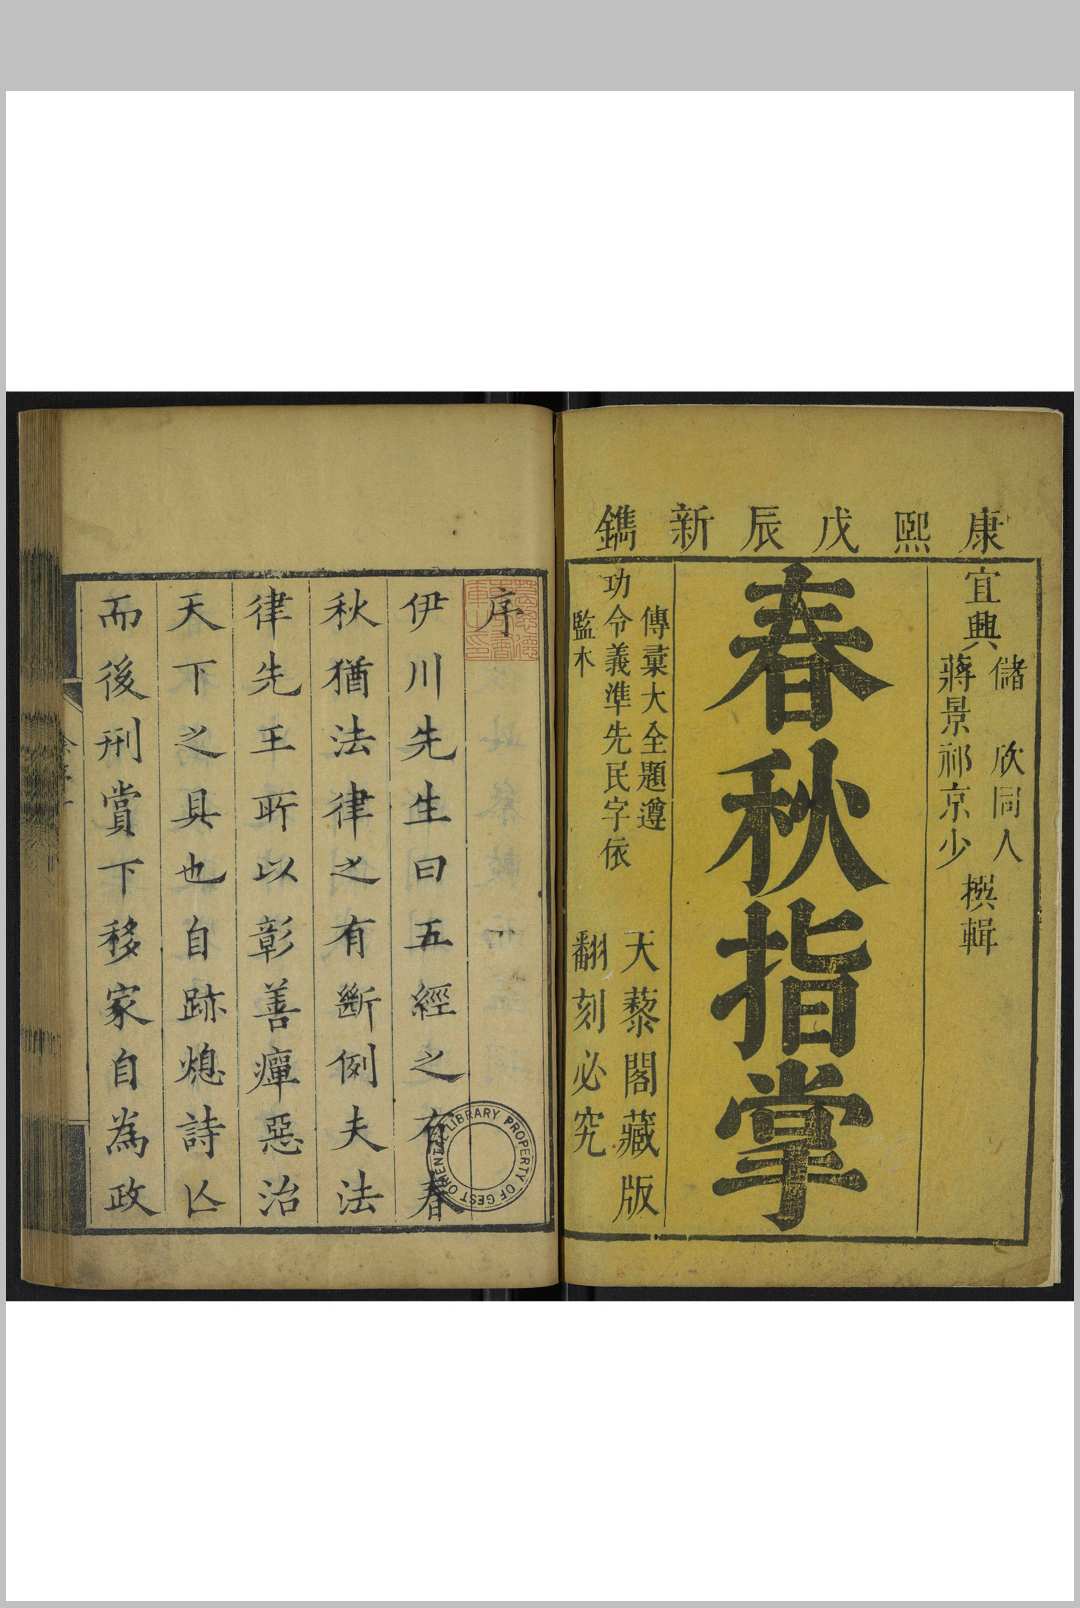 康熙戊辰新鐫
宜興
儲欣同人
蔣景祁京少
撰輯
春秋指掌
傳彙大全題遵
功令義準先民字依
監本
天藜閣藏版
翻刻必究
序
伊川先生曰五經之有春
秋猶法律之有斷例夫法
律先王所以彰善癉惡治
天下之具也自跡熄詩亾
而後刑賞下移家自為政
PROPERTY OF GEST ORIENTAL LIBRARY